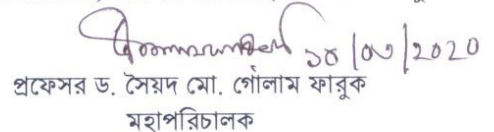 ১০/০৩/2020
প্রফেসর ড. সৈয়দ মো. গোলাম ফারুক
মহাপরিচালক